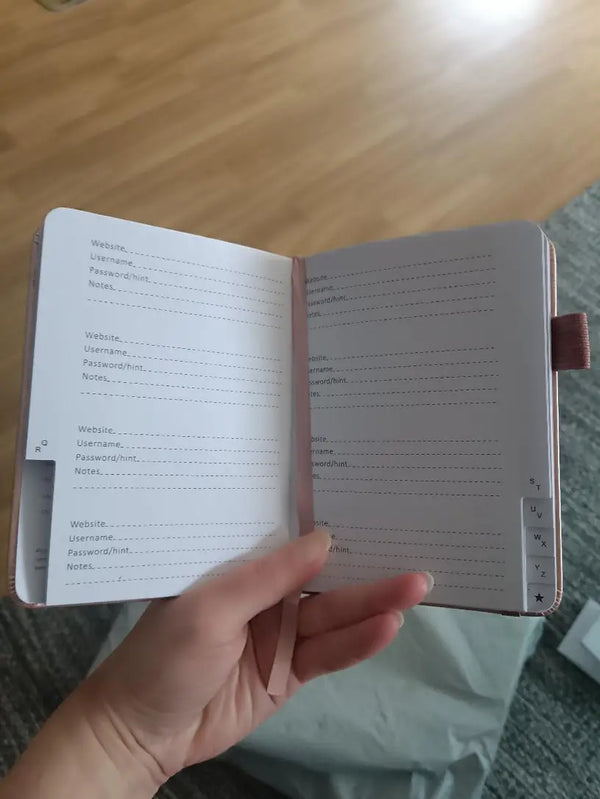 Website
Username
Password/hint
Notes
Website
Username
Password/hint
Notes
Website
Username
Password/hint
Notes
Website
Username
Password/hint
Notes
Q
R
Website
Username
Password/hint
Notes
Website
Username
Password/hint
Notes
Website
Username
Password/hint
Notes
Website
S
T
U
V
W
X
Y
Z